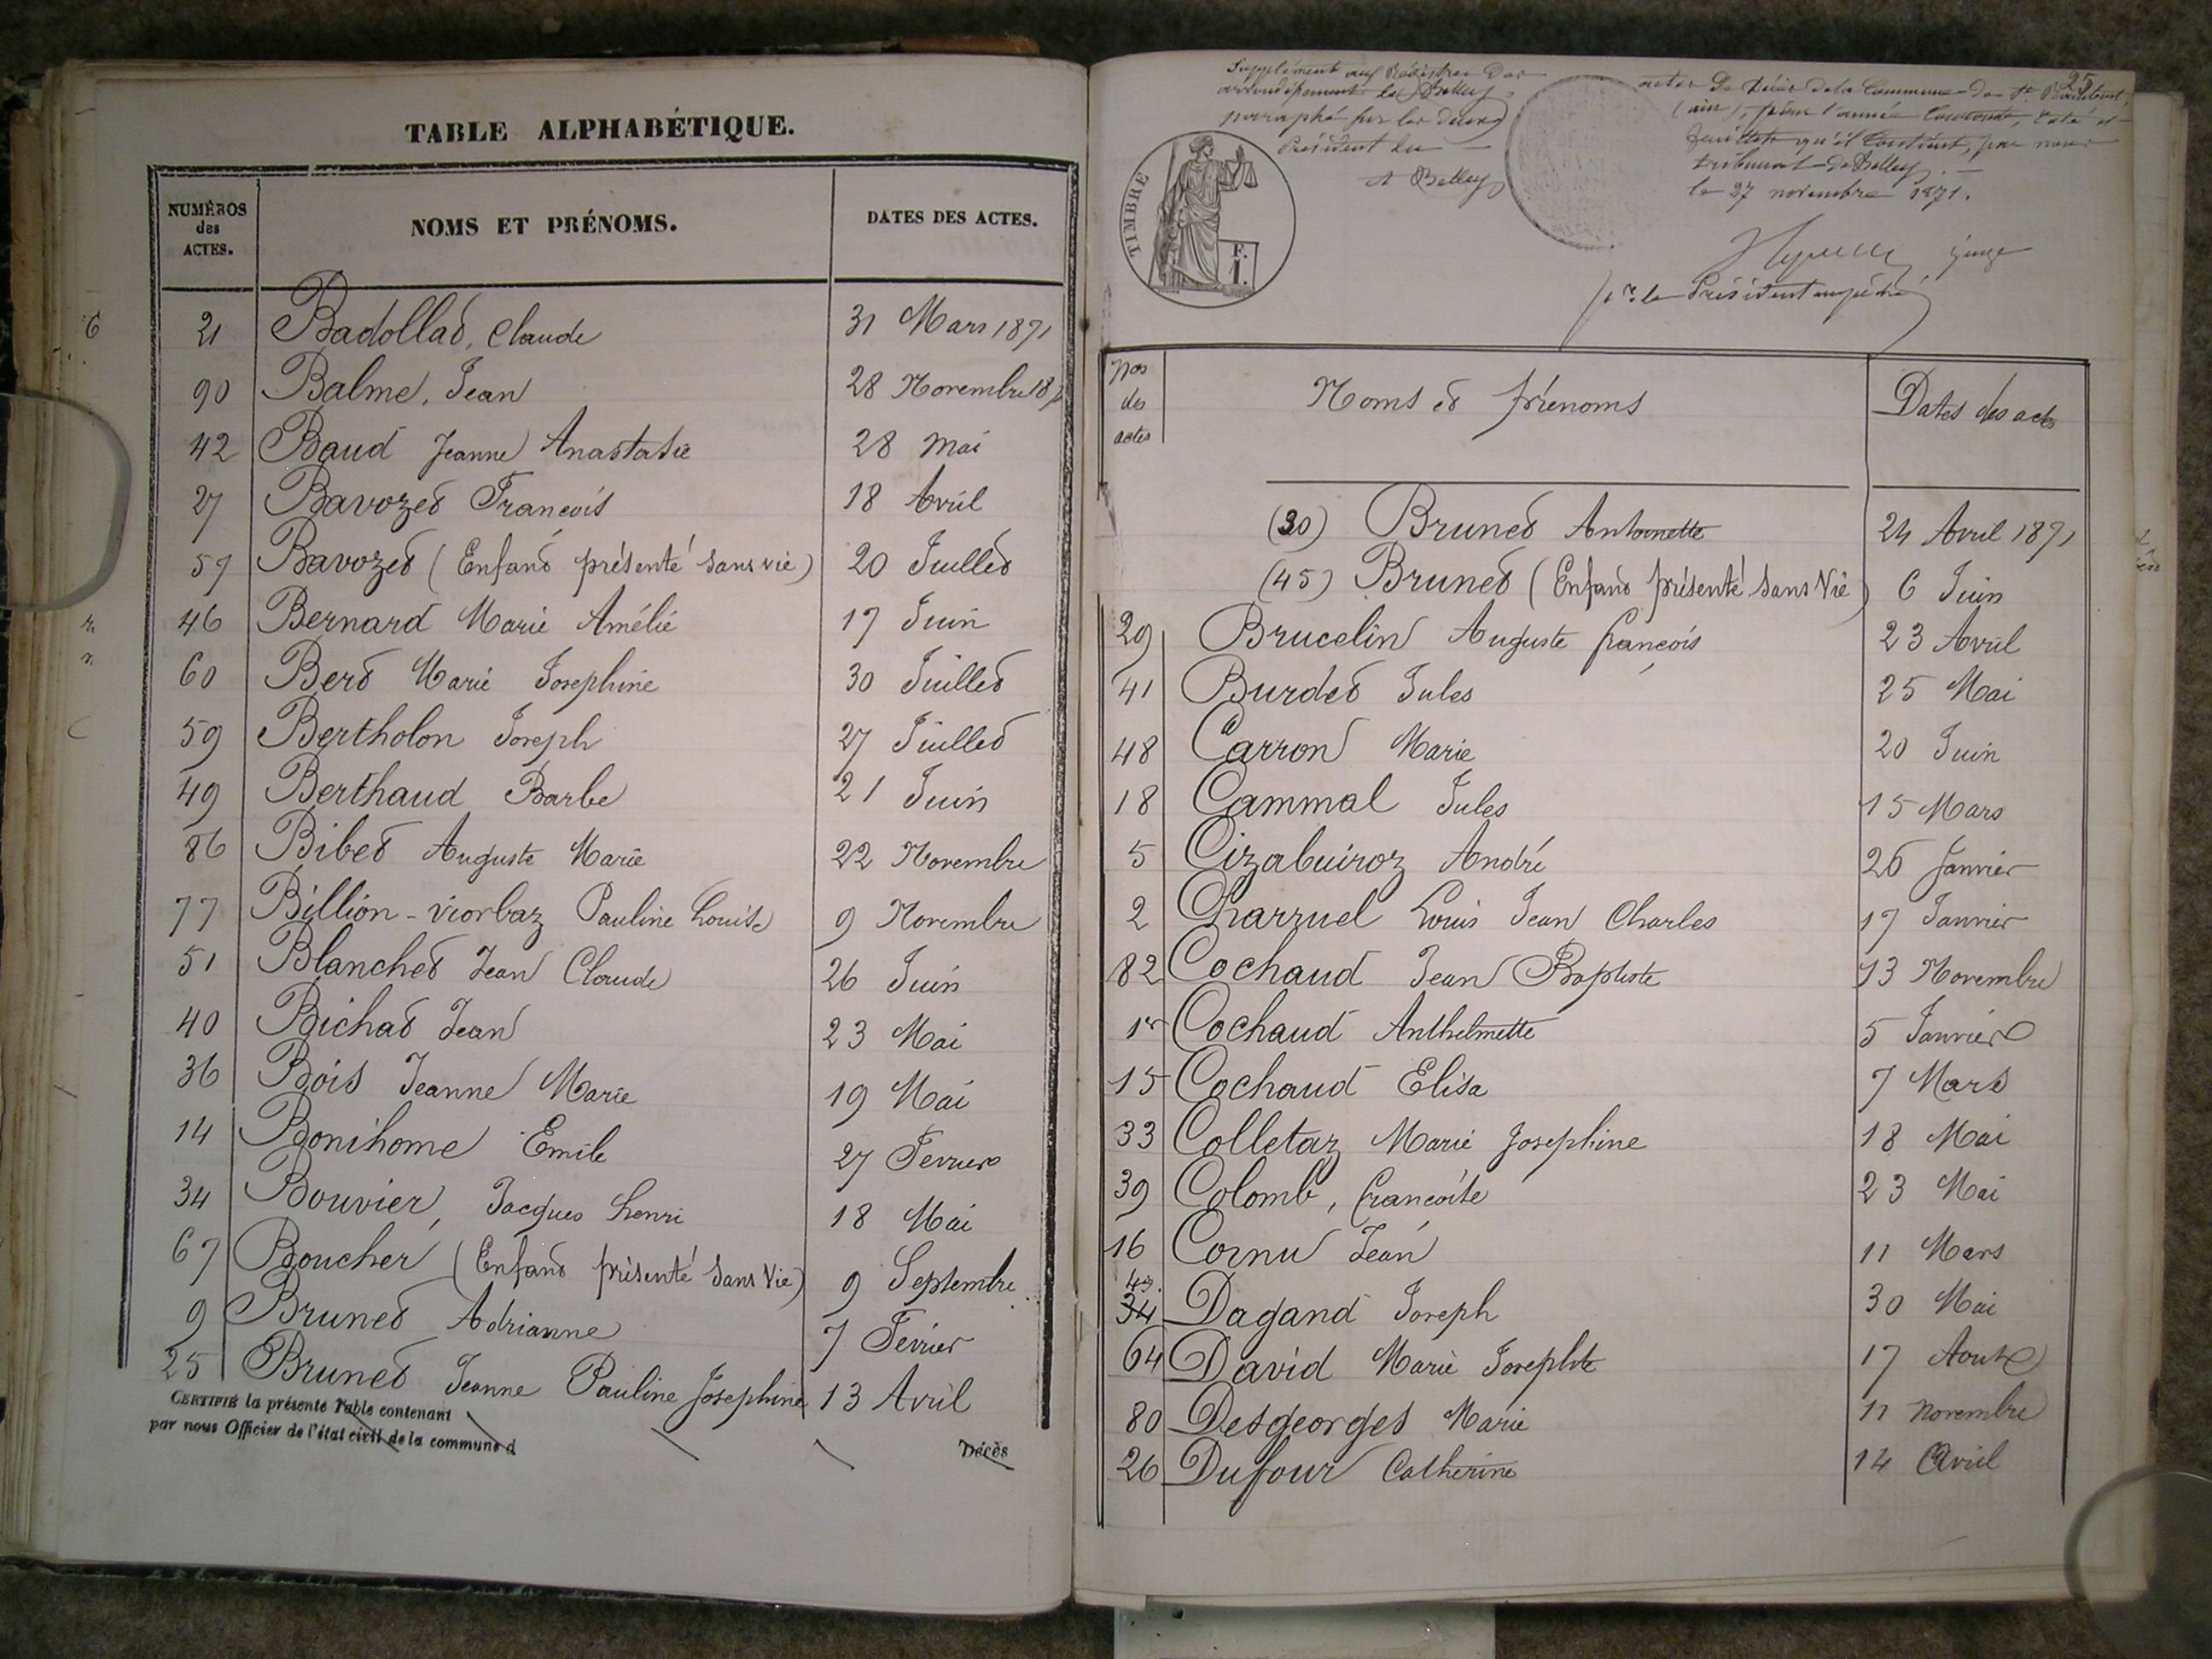 TABLE ALPHABÉTIQUE.
NUMÉROS des ACTES. NOMS ET PRÉNOMS. DATES DES ACTES.
21 Badollat, Claude 31 Mars 1871
90 Balme, Jean 28 Novembre 187
42 Baud Jeanne Anastasie 28 Mai
27 Bavozet François 18 Avril
57 Bavozet (Enfant présenté sans vie) 20 Juillet
46 Bernard Marie Amélie 17 Juin
60 Bert Marie Josephine 30 Juillet
59 Bertholon Joseph 27 Juillet
49 Berthaud Barbe 21 Juin
86 Bibet Auguste Marie 22 Novembre
77 Billion-viorbaz Pauline Louise 9 Novembre
51 Blanchet Jean Claude 26 Juin
40 Bichat Jean 23 Mai
36 Bois Jeanne Marie 19 Mai
14 Bonihome Emile 27 Fevrier
34 Bouvier, Jacques henri 18 Mai
67 Boucher (Enfant présenté sans Vie) 9 Septembre
9 Brunet Adrianne 7 Fevrier
25 Brunet Jeanne Pauline Josephine 13 Avril
CERTIFIÉ la présente Table contenant
par nous Officier de l'état civil de la commune d Décès
Supplément aux Régistres des actes de Décès de la Commune de St
arrondissement de Belley (ain), pour l'année courante, coté et
paraphé sur les deux feuillets qu'il contient, par nous
Président du tribunal de Belley.
A Belley le 27 novembre 1871.
juge
pr le Président empêché
25
TIMBRE
F.
1.
Nos des actes Noms et prénoms Dates des actes
(30) Brunet Antoinette 24 Avril 1871
(45) Brunet (Enfant présenté sans Vie) 6 Juin
29 Brucelin Auguste françois 23 Avril
41 Burdet Jules 25 Mai
48 Carron Marie 20 Juin
18 Cammal Jules 15 Mars
5 Cizabuiroz André 26 Janvier
2 Charruel Louis Jean Charles 17 Janvier
82 Cochaud Jean Baptiste 13 Novembre
1er Cochaud Anthelmette 5 Janvier
15 Cochaud Elisa 7 Mars
33 Colletaz Marie Josephine 18 Mai
39 Colomb, francoise 23 Mai
16 Cornu Jean 11 Mars
43.
34 Dagand Joseph 30 Mai
64 David Marie Josephte 17 Aout
80 Desgeorges Marie 11 Novembre
26 Dufour Catherine 14 Avril